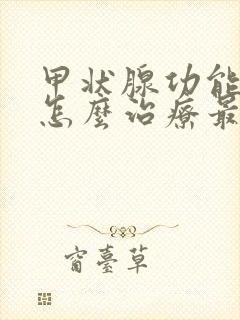 甲状腺功能
怎麼治療最
窗臺草